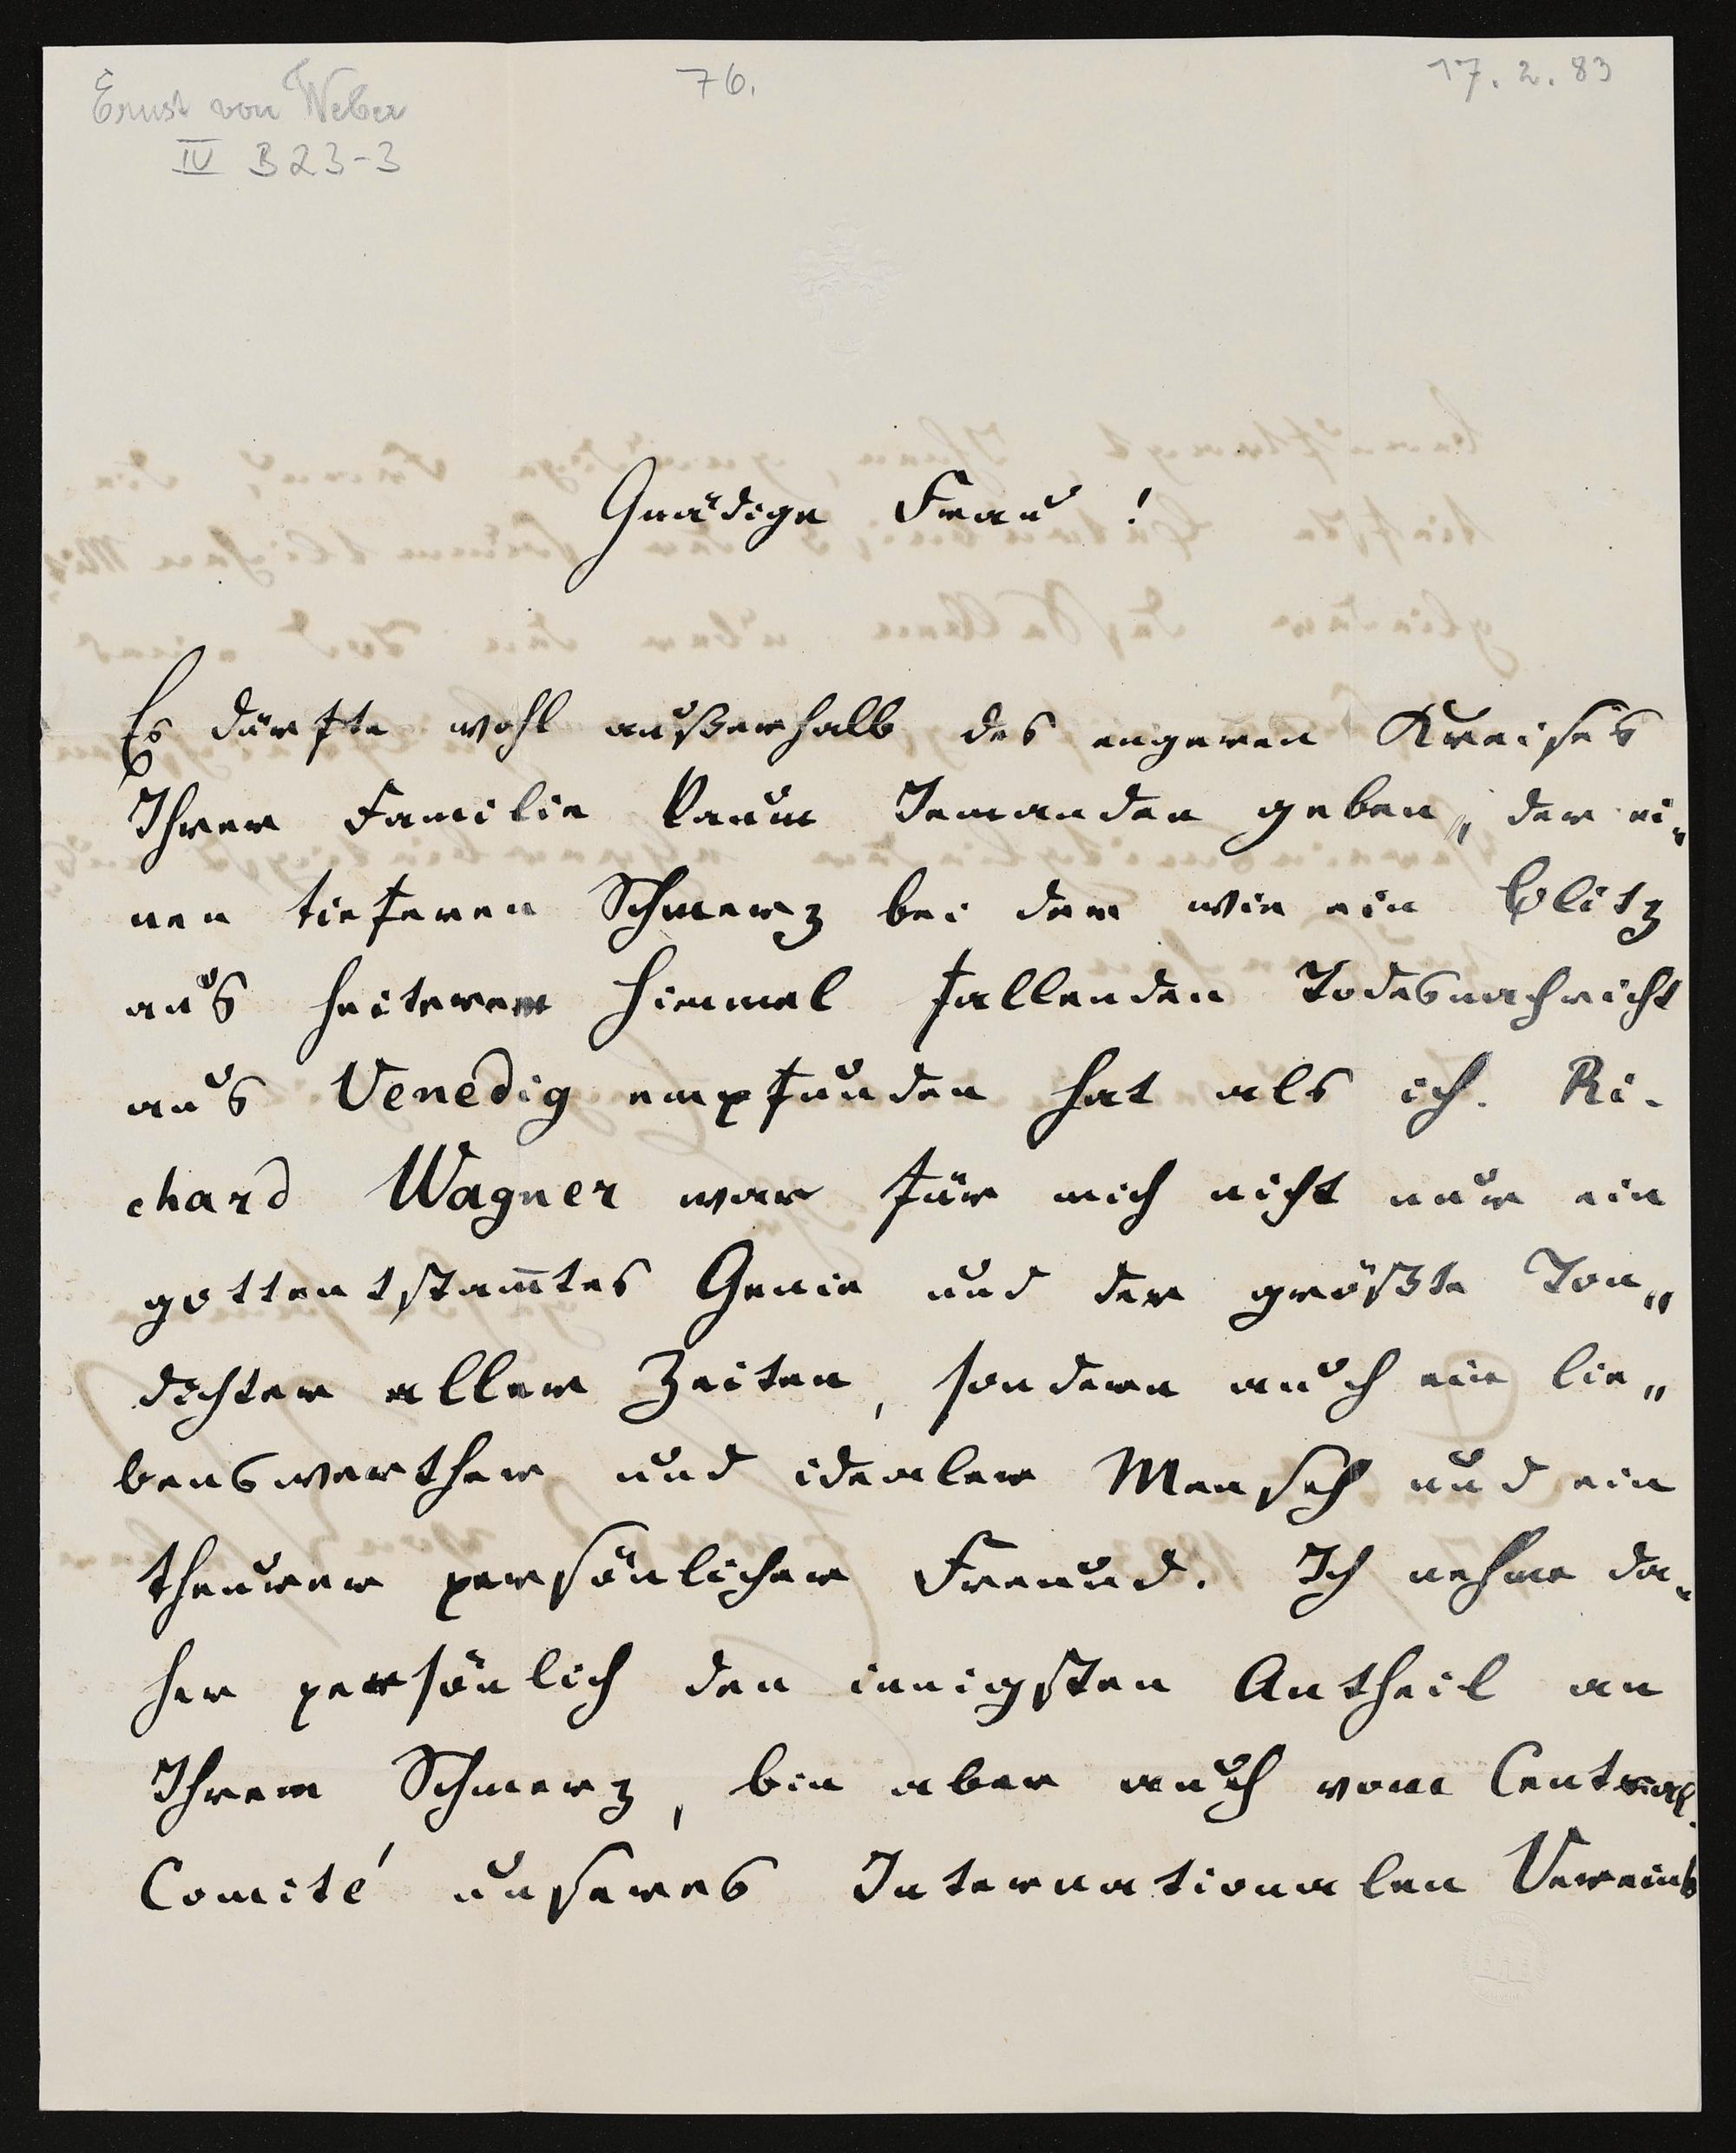 Ernst von Weber
IV B 23-3
76.
17. 2. 83
Gnädige Frau !
Es dürfte wohl außerhalb des engeren Kreises
Ihrer Familie kaum Jemanden geben, der ei-
nen tieferen Schmerz bei der wie ein Blitz
aus heiterem Himmel fallenden Todesnachricht
aus Venedig empfunden hat als ich. Ri-
chard Wagner war für mich nicht nur ein
gottentstam̅tes Genie und der größte Ton„
dichter aller Zeiten, sondern auch ein lie„
benswerther und idealer Mensch und ein
theurer persönlicher Freund. Ich nehme da-
her persönlich den innigsten Antheil an
Ihrem Schmerz, bin aber auch vom Central-
Comité unseres Internationalen Vereins